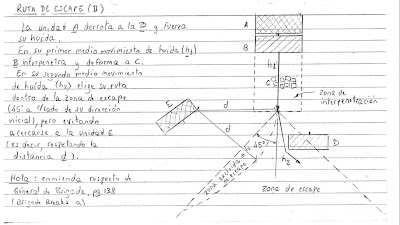 RUTA DE ESCAPE (II)
La unidad A derrota a la B y fuerza
su huida.
En su primer medio movimiento de huida (h1)
B interpenetra y deforma a C.
En su segundo medio movimiento
de huida (h2) elige su ruta
dentro de la zona de escape
(45° a c/lado de su dirección
inicial), pero evitando
acercarse a la unidad E
(es decir, respetando la
distancia d).
Nota: enmienda respecto de
General de Brigada, pg 138
(Brigade Breaks a)
A
B
h1
C
zona de
interpenetración
E
d
d
45°
h2
D
zona excluida
escape
zona de escape